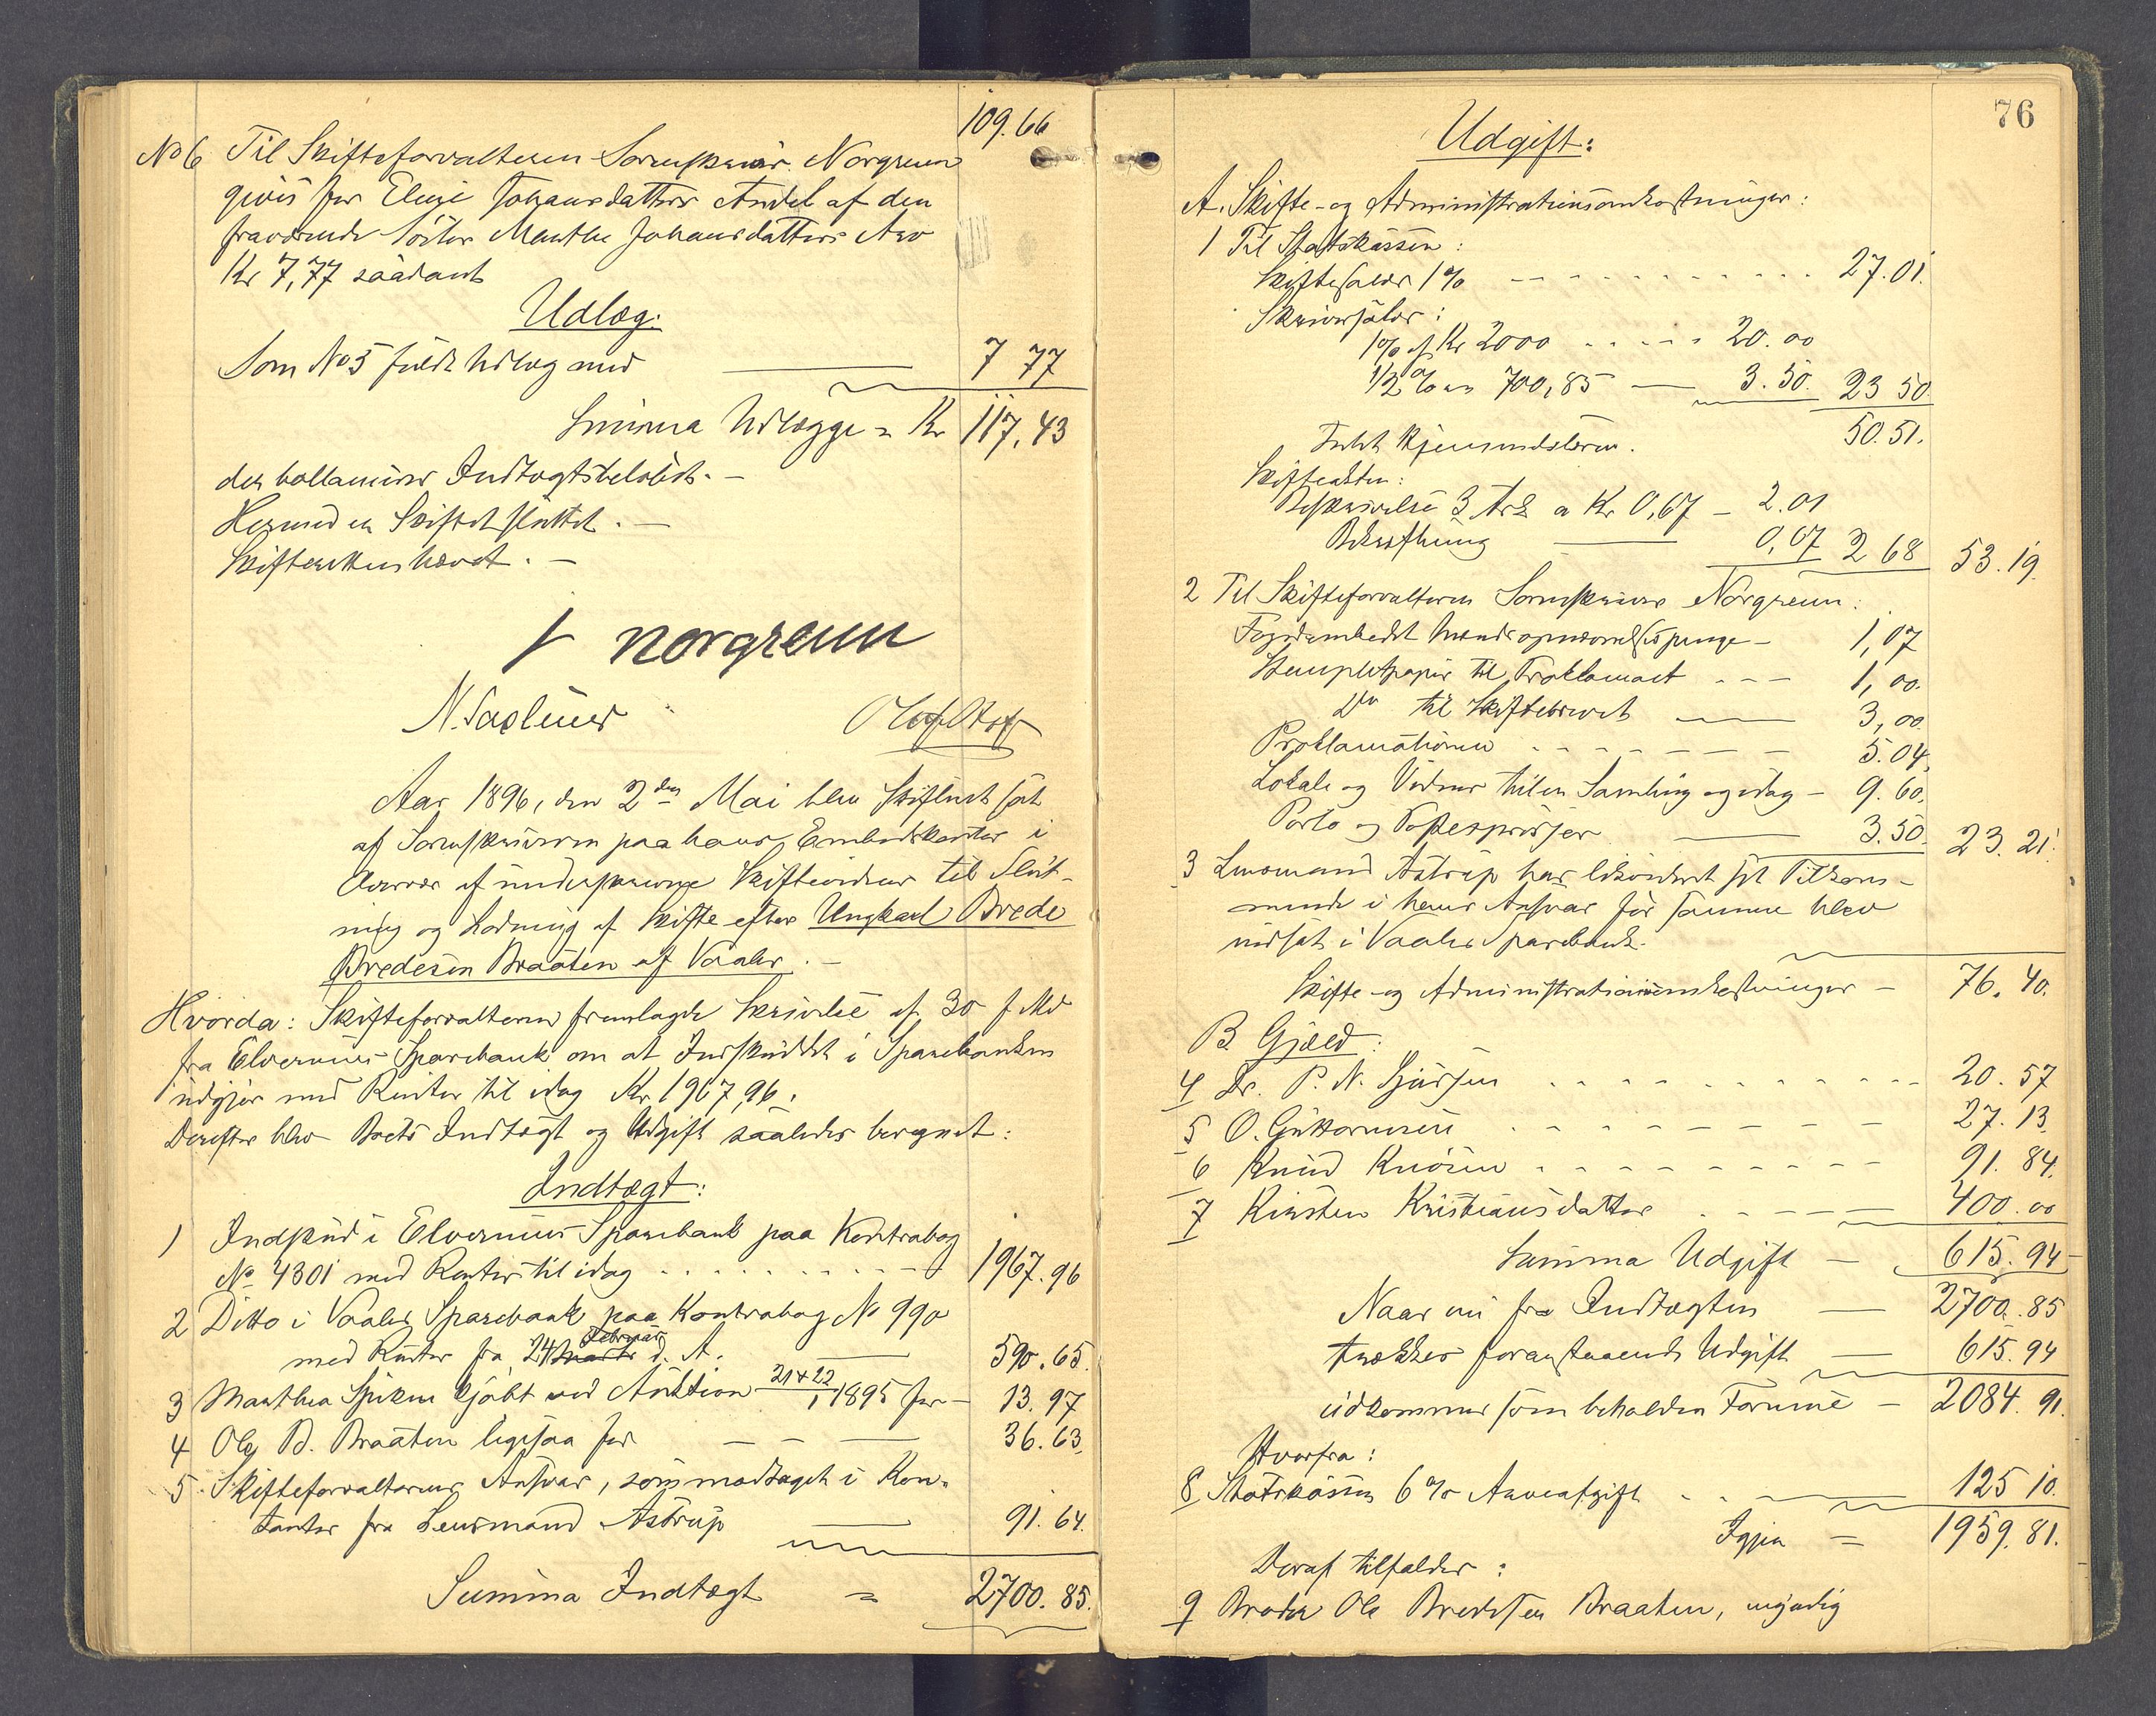 109.66
No 6 Til Skifteforvalteren Sorenskriver Norgrenn
givis for Elise Johansdatters Andel af den
fraværende Söster Marthe Johansdatters Arv
Kr 7,77 saadant
Udlæg:
Som No 5 fuldt Udlæg med 7 77
Summa Udlægge = Kr 117,43
der ballancerer Indtægtsbeløbet. –
Hermed er Skiftet sluttet. –
Skifteretten hævet. –
Norgrenn
N. Olaf
Aar 1896, den 2den Mai blev Skifteret sat
af Sorenskriveren paa hans Embedskontor i
Overvær af underskrevne Skiftevidner til Slut-
ning og Lodning af Skifte efter Ungkarl Brede
Bredesen Braaten af Vaaler. –
Hvorda: Skifteforvalteren fremlagde Skrivelse af 30 f. Md
fra Elverums Sparebank om at Indskuddet i Sparebanken
udgjør med Renter til idag Kr 1967,96.
Derefter blev Boets Indtægt og Udgift saaledes beregnet:
Indtægt:
1 Indskud i Elverums Sparebank paa Kontrabog
No 4301 med Renter til idag 1967.96
2 Ditto i Vaaler Sparebank paa Kontrabog No 990
Februar
med Renter fra 24 Marts d. A. 590.65.
3 Marthea kjöbt ved Auktion 21 & 22/1 1895 for – 13.97
4 Ole B. Braaten ligesaa for 36.63.
5 Skifteforvalterens Ansvar, som modtaget i Kon-
tanter fra Lensmand Astrup 91.64.
Summa Indtægt = 2700.85.
76
Udgift:
A. Skifte- og Administrationsomkostninger:
1 Til Statskassen:
Skiftesalær 1% 27.01.
Skriversalær:
1% af Kr 2000 20.00
1/2% " 700,85 – 3.50. 23 50
50.51.
Intet Kjennendelsem.
Skifteakten:
Beskrivelse 3 Ark a Kr 0,67 – 2.01
Bekræftning 0,67 2 68 53.19.
2 Til Skifteforvalteren Sorenskriver Norgrenn:
Fogdembedet – 1,07
Stemplet papir til Proklamaet 1,00.
Do til Skiftebrevet 3,00
Proklamationen 5.04.
Lokale og Vidner til en Samling og idag – 9.60.
Porto og 3.50. 23.21.
3 Lensmand Astrup har likvideret sit Tilkom-
mende i hans Ansvar för samme blev
indsat i Vaaler Sparebank.
Skifte- og Administrationsomkostninger – 76.40.
B. Gjæld:
4 Dr. P. N. 20.57
5 O. Guttormsen 27.13.
6 Knud Knösen 91.84.
7 Kirsten Kristiansdatter 400.00
Summa Udgift – 615.94 –
Naar nu fra Indtægten 2700.85
trækkes foranstaaende Udgift 615.94
udkommer som beholden Formue – 2084.91.
Hvorfra:
8 Statskassen 6% Arveafgift 125 10.
Igjen = 1959.81.
Deraf tilfalder:
9 Broder Ole Bredesen Braaten, myndig